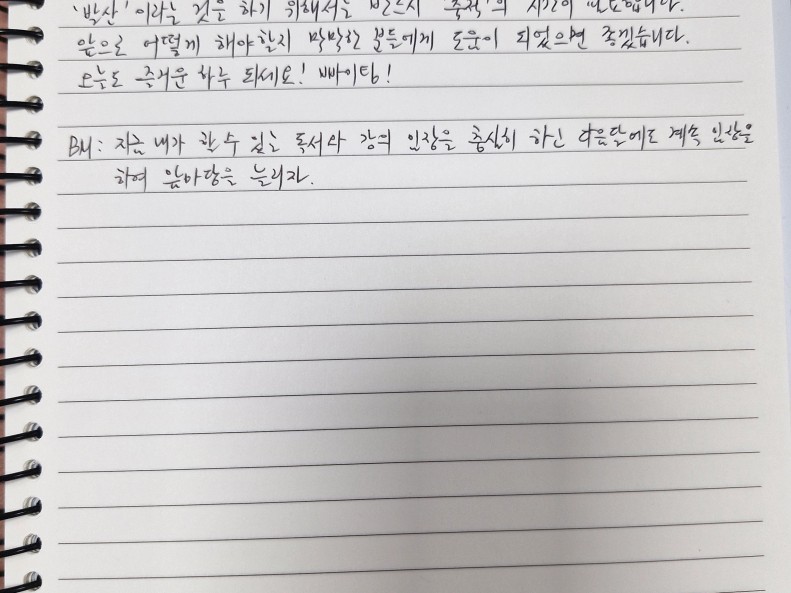 '발산'이라는 것을 하기 위해서는 반드시 '축적'의 시간이 필요합니다.
앞으로 어떻게 해야할지 막막한 분들에게 도움이 되었으면 좋겠습니다.
오늘도 즐거운 하루 되세요! 빠이팅!
BM: 지금 내가 할 수 있는 독서와 강의 임장을 충실히 하고 다음달에도 계속 임장을
하여 앞마당을 늘리자.